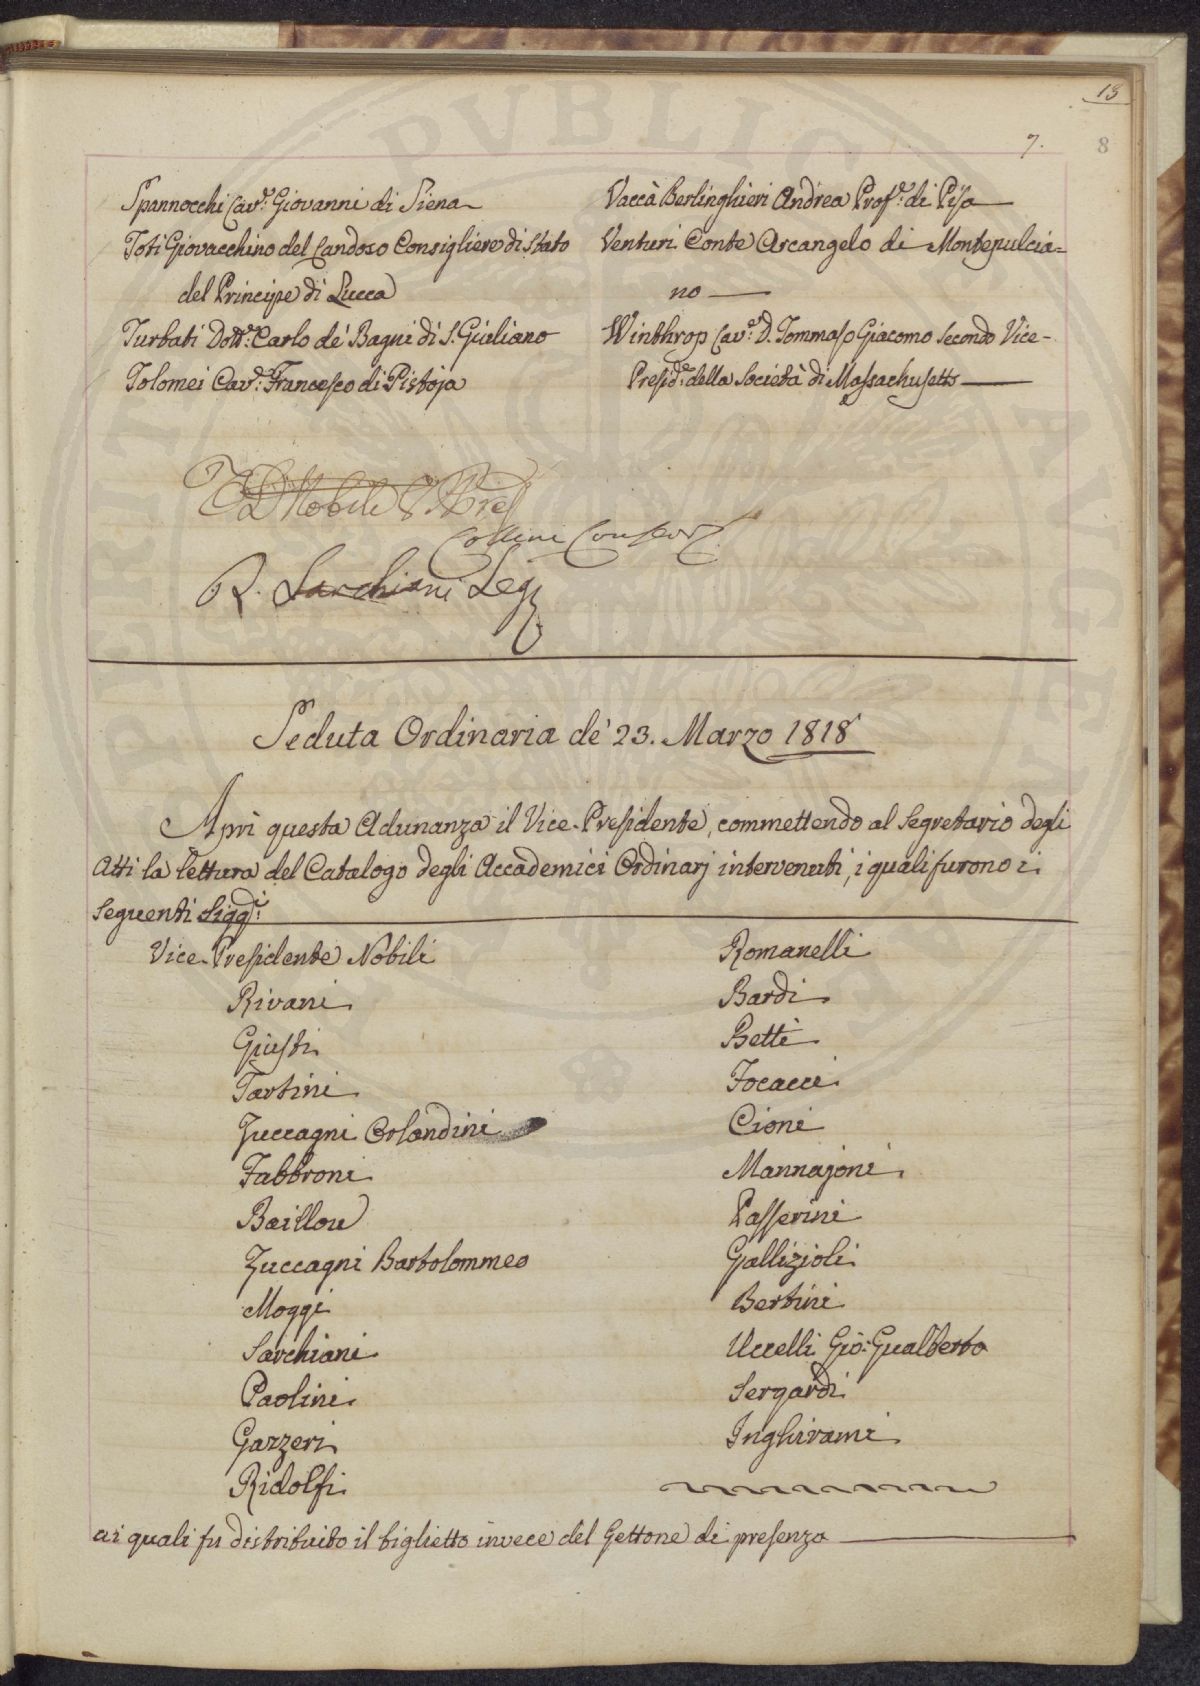 13
7.
8
Spannocchi Cav.r Giovanni di Siena
Toti Giovacchino del Cardoso Consigliere di Stato
del Principe di Lucca
Turbati Dott.r Carlo de' Bagni di S. Giuliano
Tolomei Cav.r Francesco di Pistoja
Vaccà Berlinghieri Andrea Prof.e di Pisa
Venturi Conte Arcangelo di Montepulcia=
no
Winthrop Cav.r D. Tommaso Giacomo Secondo Vice-
Presid.e della Società di Massachusetts
Nobili V. Pres
Collini
R. Sarchiani Seg
Seduta Ordinaria de' 23. Marzo 1818
Aprì questa Adunanza il Vice-Presidente, commettendo al Segretario degli
Atti la lettura del Catalogo degli Accademici Ordinarj intervenuti, i quali furono i
seguenti Sigg.ri
Vice-Presidente Nobili
Rivani
Giusti
Tartini
Zuccagni Orlandini
Fabbroni
Baillou
Zuccagni Bartolommeo
Moggi
Sarchiani
Paolini
Gazzeri
Ridolfi
Romanelli
Bardi
Betti
Focacci
Cioni
Mannajoni
Passerini
Gallizioli
Bertini
Uccelli Gio: Gualberto
Sergardi
Inghirami
ai quali fu distribuito il biglietto invece del Gettone di presenza